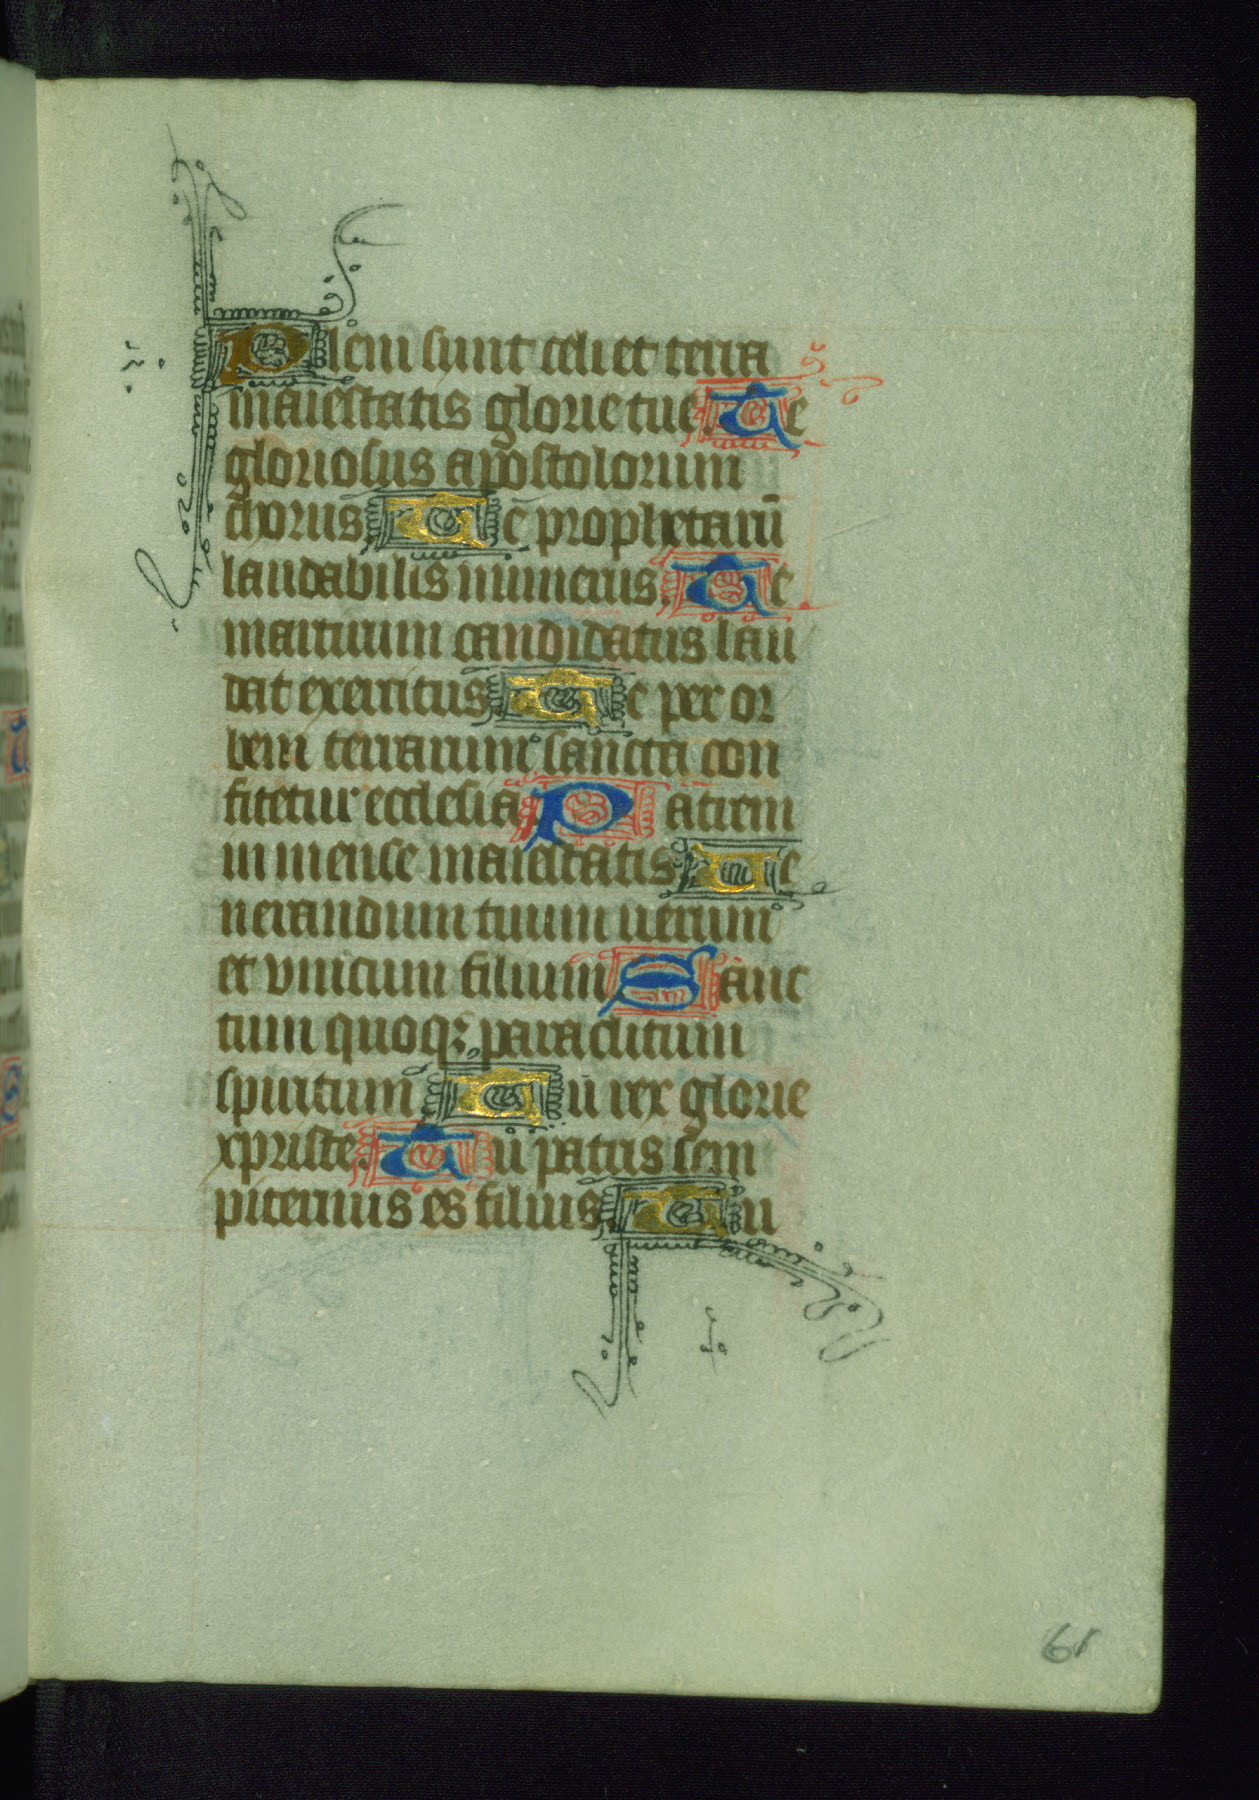 Pleni sunt celi et terra
maiestatis glorie tue. Te
gloriosus apostolorum
chorus. Te prophetarū
laudabilis numerus. Te
martirum candidatus lau
dat exercitus Te per or
bem terrarum sancta con
fitetur ecclesia. Patrem
inmense maiestatis Ue
nerandum tuum uerum
et vnicum filium Sanc
tum quoqꝫ paraclitum
spiritum Tu rex glorie
xpriste. Tu patris sem
piternus es filius Tu
61